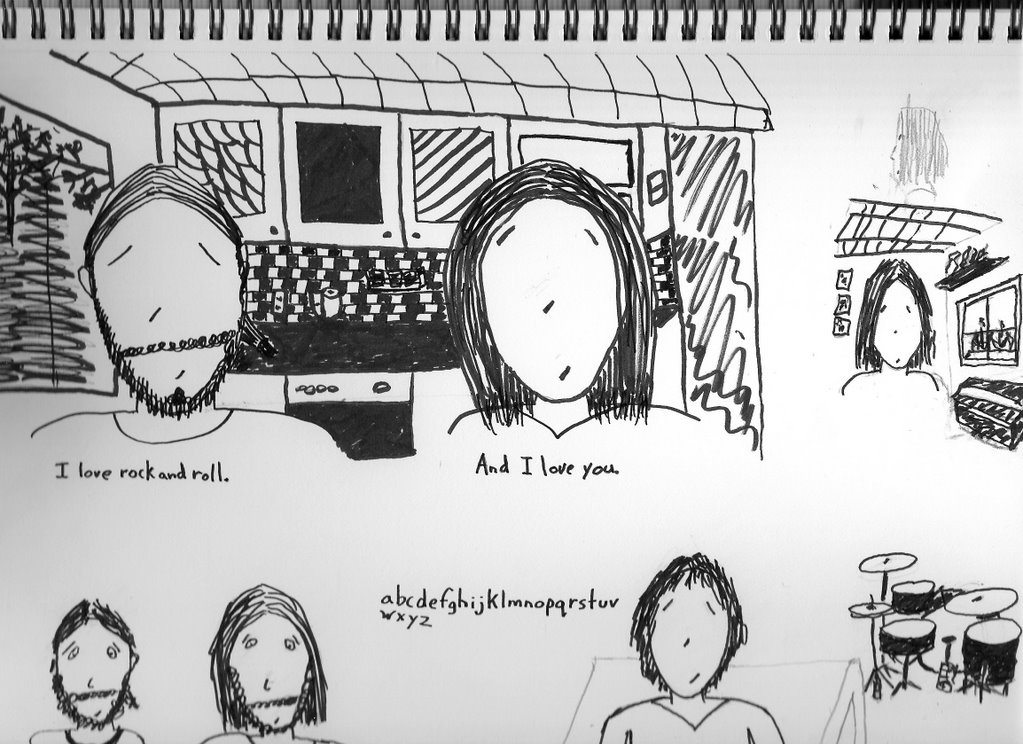 I love rock and roll.
And I love you.
abcdefghijklmnopqrstuv
wxyz